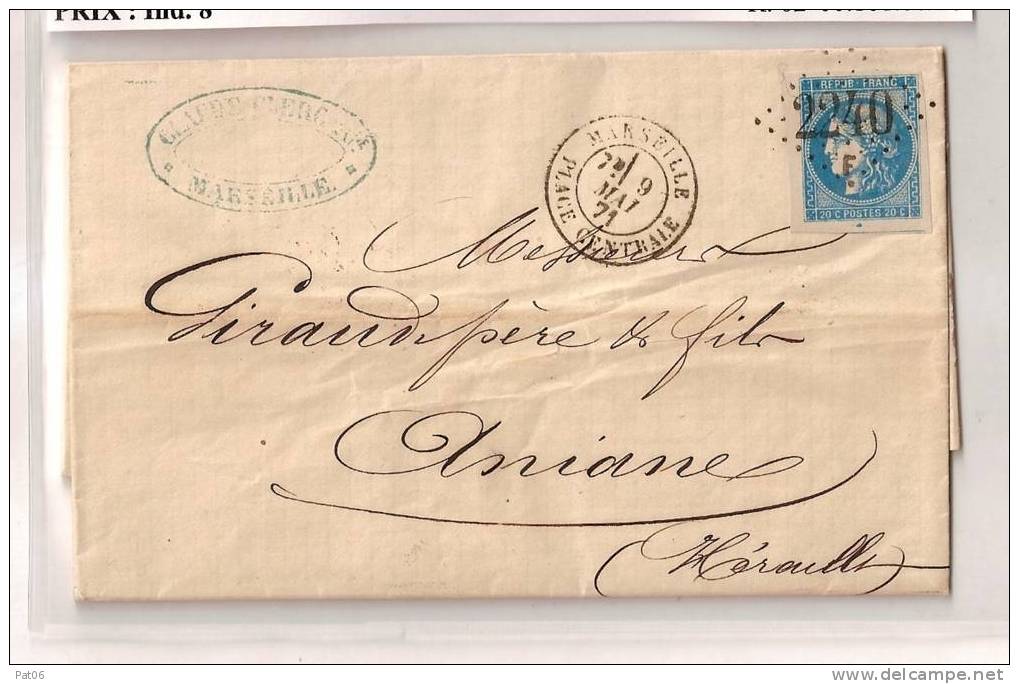 PRIX : Ind. 8
CLAUDE CLERC
MARSEILLE.
MARSEILLE
9
MAI
71
PLACE CENTRALE
REPUB. FRANC.
2240
E
20 C POSTES 20 C
Messieurs
Giraud père & fils
Aniane
Hérault
Pat06
www.delcampe.net